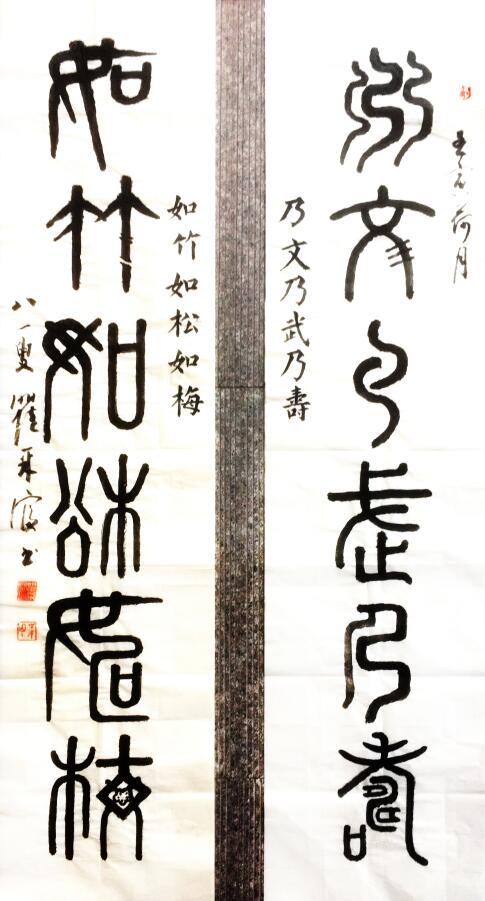 壬寅荷月
乃文乃武乃壽
乃文乃武乃壽
如竹如松如梅
如竹如松如梅
八一叟 瞿 书